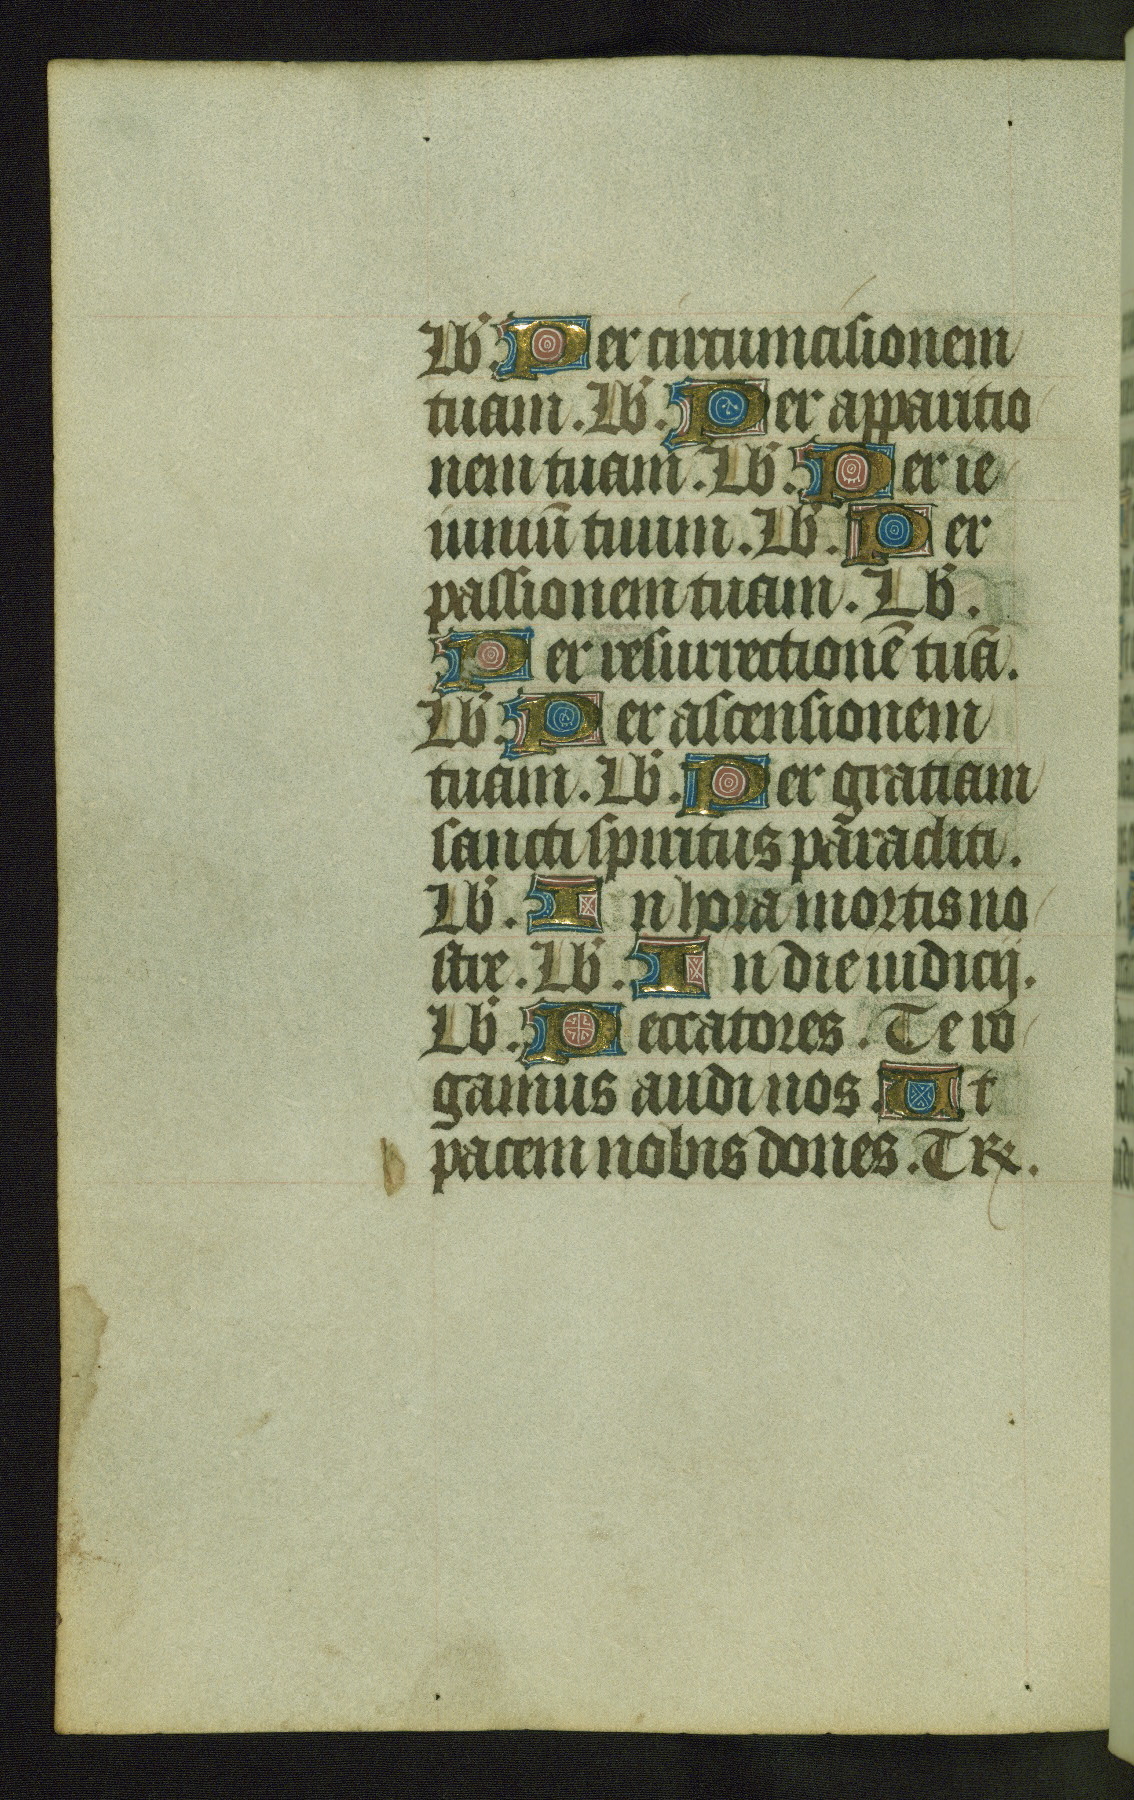 Lb̃. Per circumcisionem
tuam. Lb̃. Per apparitio
nem tuam. Lb̃. Per ie
iuniũ tuum. Lb̃. Per
passionem tuam. Lb̃.
Per resurrectionẽ tuã.
Lb̃. Per ascensionem
tuam. Lb̃. Per gratiam
sancti spiritus paracliti.
Lb̃. In hora mortis no
stre. Lb̃. In die iudicij.
Lb̃. Peccatores. Te ro
gamus audi nos. Ut
pacem nobis dones. T R.